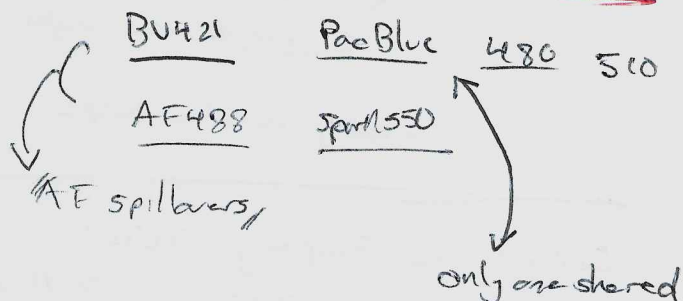 BV421 PacBlue 480 510
AF488 Spark550
"AF spillovers"
only one shared